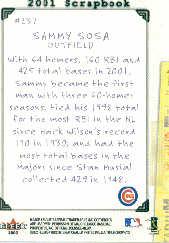 2001 Scrapbook
#257
SAMMY SOSA
OUTFIELD
With 64 homers, 160 RBI and
425 total bases in 2001,
Sammy became the first
man with three 60-homer
seasons, tied his 1998 total
for the most RBI in the NL
since Hack Wilson's record
190 in 1930, and had the
most total bases in the
majors since Stan Musial
collected 429 in 1948.